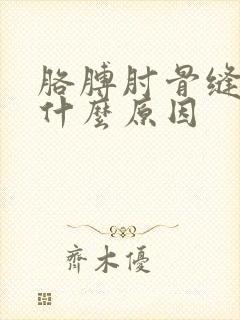 胳膊肘骨缝
什麼原因
齊木優